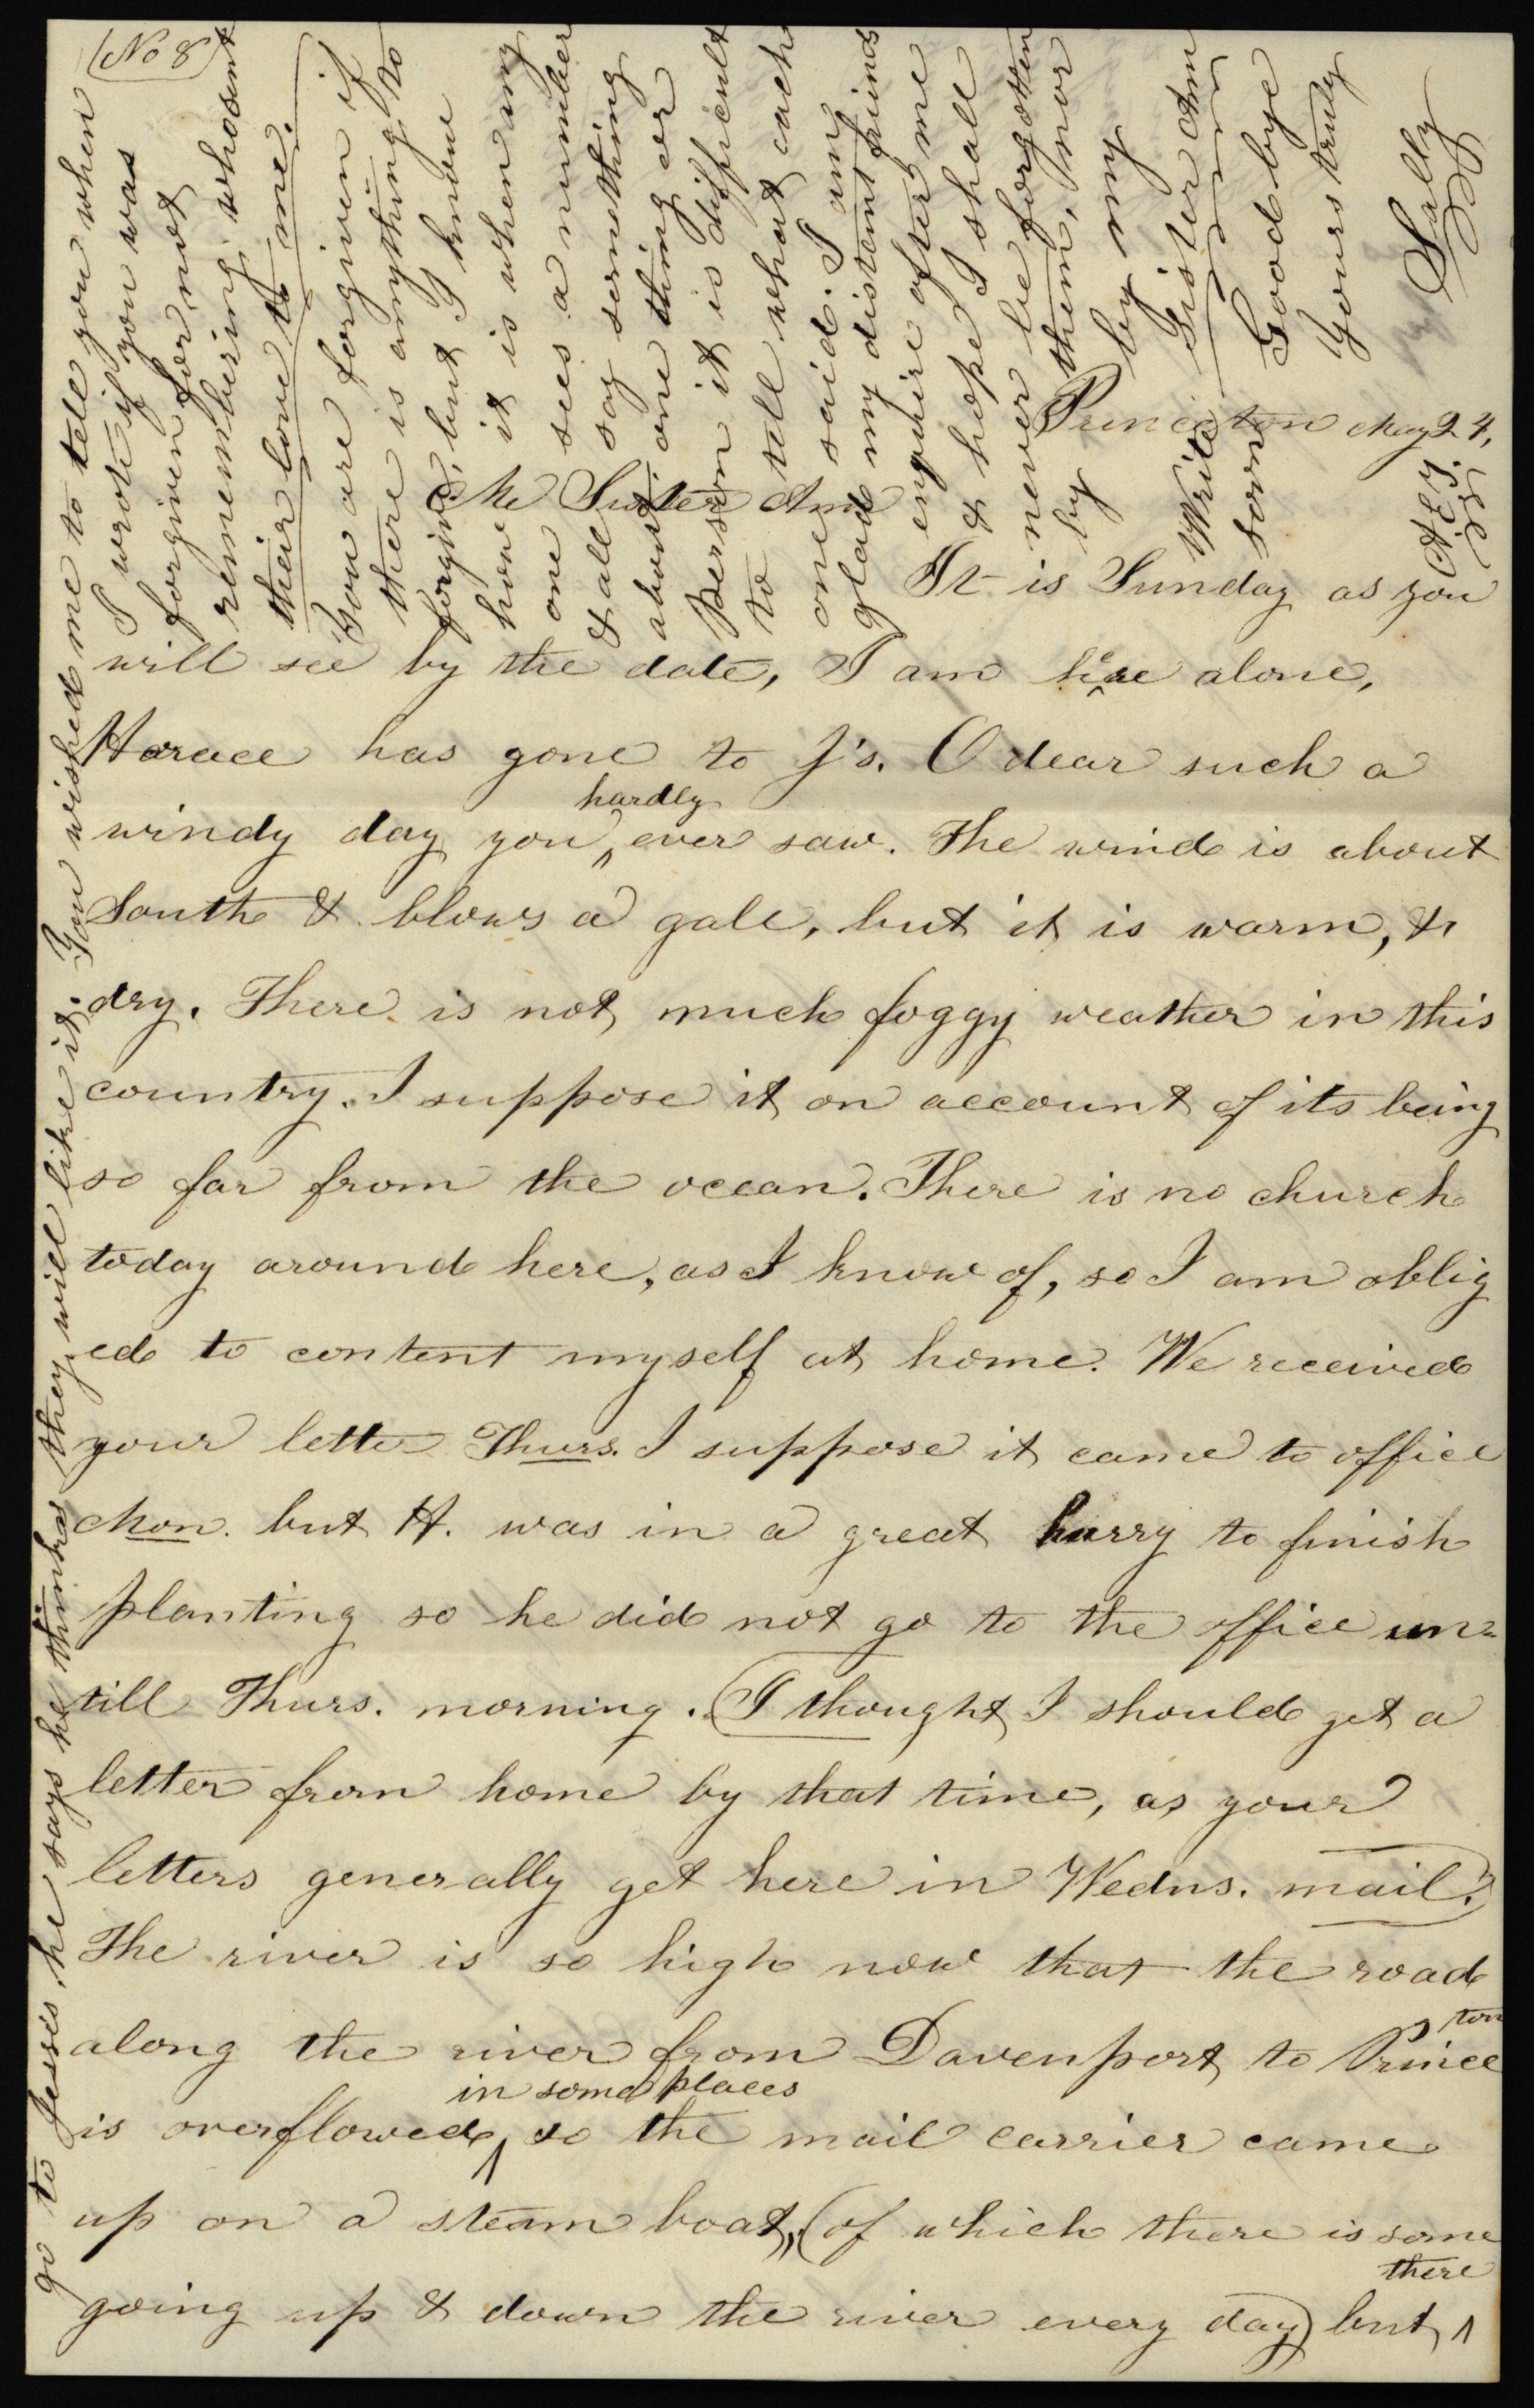 (No 8)
Princeton May 24,
My Sister Ann
It is Sunday as you
will see by the date, I am here alone,
Horace has gone to J's. O dear such a
windy day you hardly ever saw. The wind is about
South & blows a gale, but it is warm, &
dry. There is not much foggy weather in this
country. I suppose it on account of its being
so far from the ocean. There is no church
today around here, as I know of, so I am oblig
ed to content myself at home. We received
your letter Thurs. I suppose it came to office
Mon. but H. was in a great hurry to finish
planting so he did not go to the office un-
till Thurs. morning. (I thought I should get a
letter from home by that time, as your
letters generally get here in Wedns. mail.)
The river is so high now that the road
along the river from Davenport to Princeton
is overflowed in some places, so the mail carrier came
up on a steam boat, (of which there is some
going up & down the river every day) but there
go to Jesses, he says he thinks they will like it. You wished me to tell you when
I wrote if you was
forgiven for not
remembering whosent
their love to me.
You are forgiven if
there is anything to
forgive, but I know
how it is when any
one sees a number
& all say something
about one thing or
person it is difficult
to tell what each
one said. I am
glad my distant friends
enquire after me
& hope I shall
never be forgotten
by them, nor
by my
Sister Ann
Write soon
Good bye
Yours truly
Sally